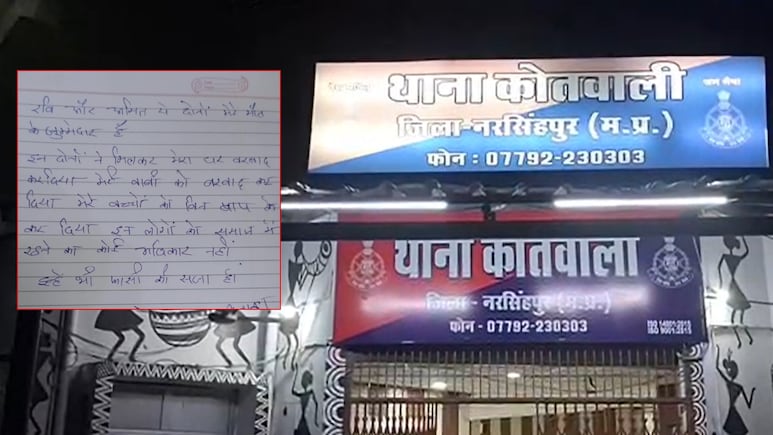 रवि और अमित ये दोनों मेरे मौत
के जुम्मेदार हैं
इन दोनों ने मिलकर मेरा घर बरबाद
करदिया मेरी बाबी को बरबाद कर
दिया मेरे बच्चों को बिन बाप के
कर दिया इन लोगों को समाज में
रहने का कोई अधिकार नहीं
इन्हें भी फासी की सजा हो
जन सेवा
थाना कोतवाली
जिला-नरसिंहपुर (म.प्र.)
फोन : 07792-230303
थाना कोतवाली
जिला - नरसिंहपुर (म.प्र.)
फोन - 07792-230303
ISO 14001:2015
ISO 9001:2015